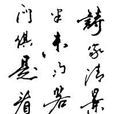 詩家清景
半未勻若
門俱是看